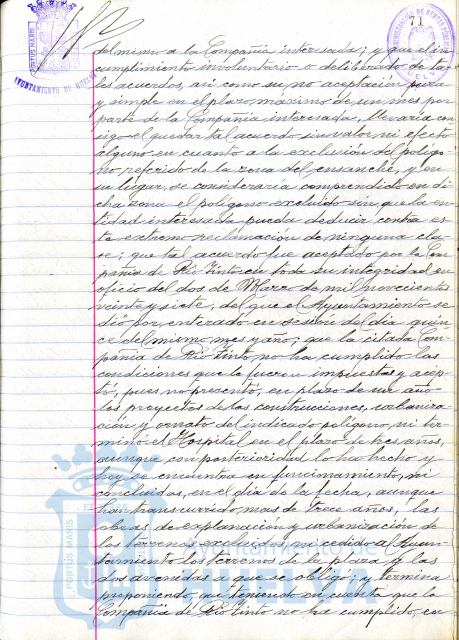 71
AYUNTAMIENTO DE HUELVA
del mismo a la Compañía interesada; y que el in
cumplimiento involuntario o deliberado de ta
les acuerdos, así como su no aceptación pura
y simple en el plazo máximo de un mes por
parte de la Compañía interesada, llevaría con
sigo el quedar tal acuerdo sin valor ni efecto
alguno en cuanto a la exclusión del polígo
no referido de la zona del ensanche, y en
su lugar, se consideraría comprendido en di
cha zona el polígono excluido sin que la en
tidad interesada pueda deducir contra es
te extremo reclamación de ninguna cla
se; que tal acuerdo fue aceptado por la Com
pañía de Río Tinto en toda su integridad en
oficio del dos de Marzo de mil novecientos
veinte y siete, del que el Ayuntamiento se
dió por enterado en sesión del día quin
ce del mismo mes y año; que la citada Com
pañía de Río Tinto no ha cumplido las
condiciones que le fueron impuestas y acep
tó, pues no presentó, en plazo de un año
los proyectos de las construcciones, urbaniza
ción y ornato del indicado polígono, ni ter
minó el Hospital en el plazo de tres años,
aunque con posterioridad lo ha hecho y
hoy se encuentra en funcionamiento, ni
concluidas, en el día de la fecha, aunque
han transcurrido mas de trece años, las
obras de explanación y urbanización de
los terrenos excluidos, ni cedido al Ayun
tamiento los terrenos de la plaza y las
dos avenidas a que se obligó; y termina
proponiendo, que teniendo en cuenta que la
Compañía de Río Tinto no ha cumplido, en
PORTUS MARIS
Ayuntamiento de
HUELVA